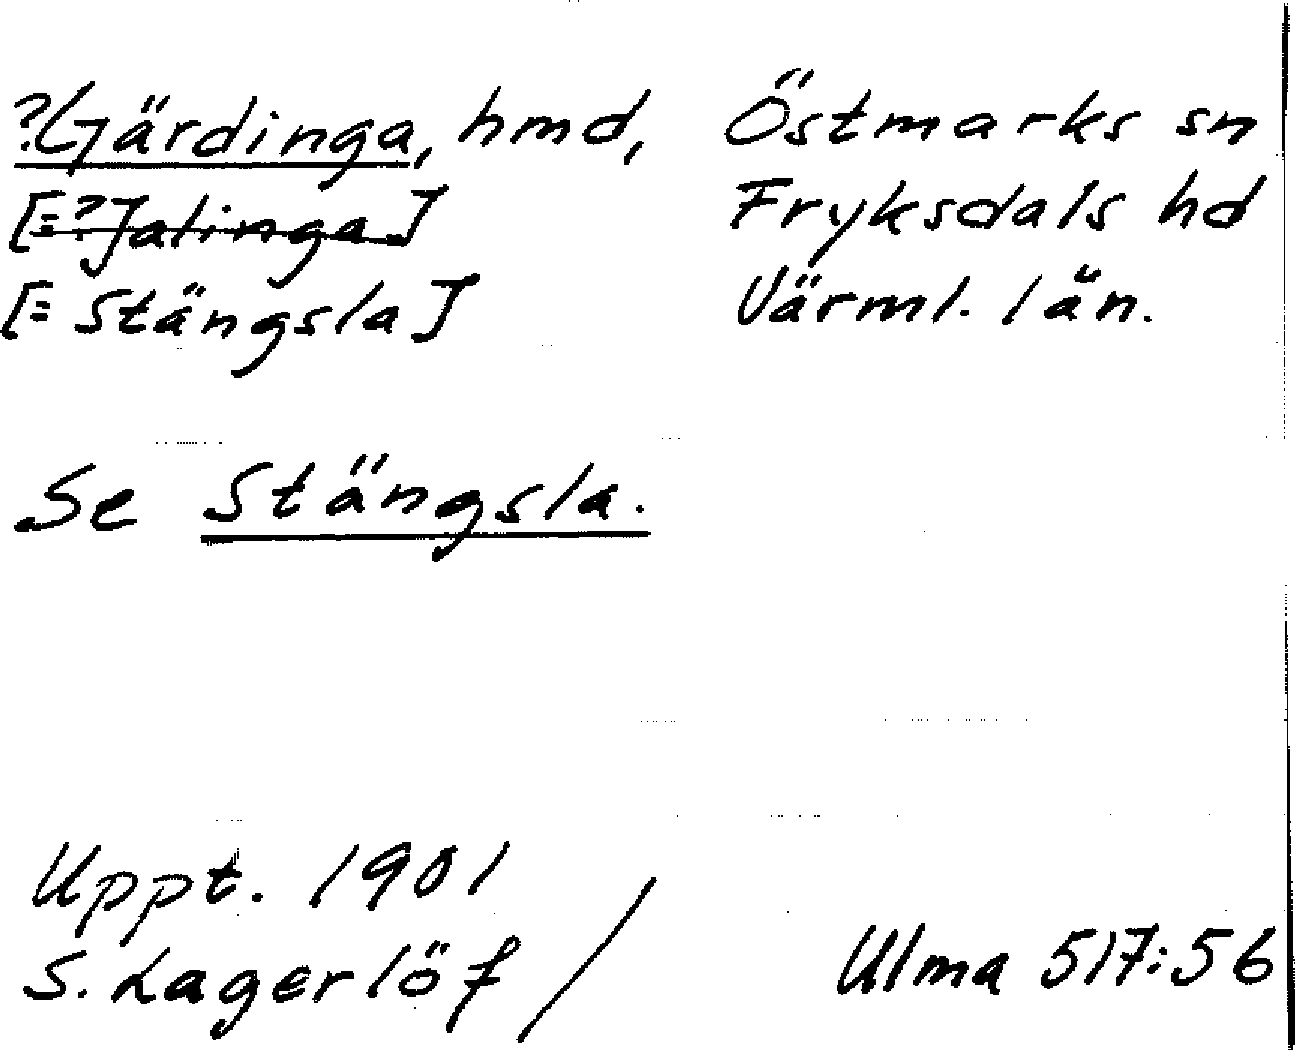 ?Gärdinga, hmd, Östmarks sn
[=?Jalinga] Fryksdals hd
[= Stängsla] Värml. län.
Se Stängsla.
Uppt. 1901
S. Lagerlöf / Ulma 517:56